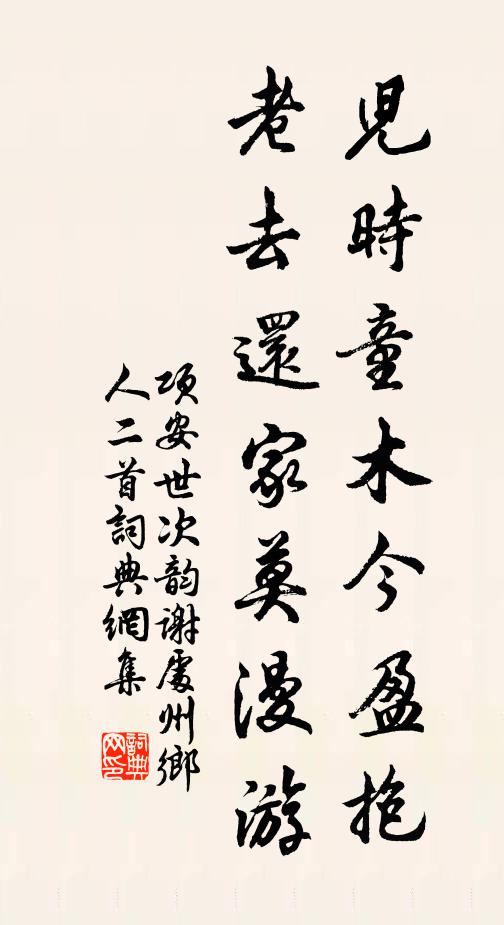 兒時童木今盈抱
老去還家莫漫游
項安世次韵謝處州鄉
人二首詞典網集
詞典
网印